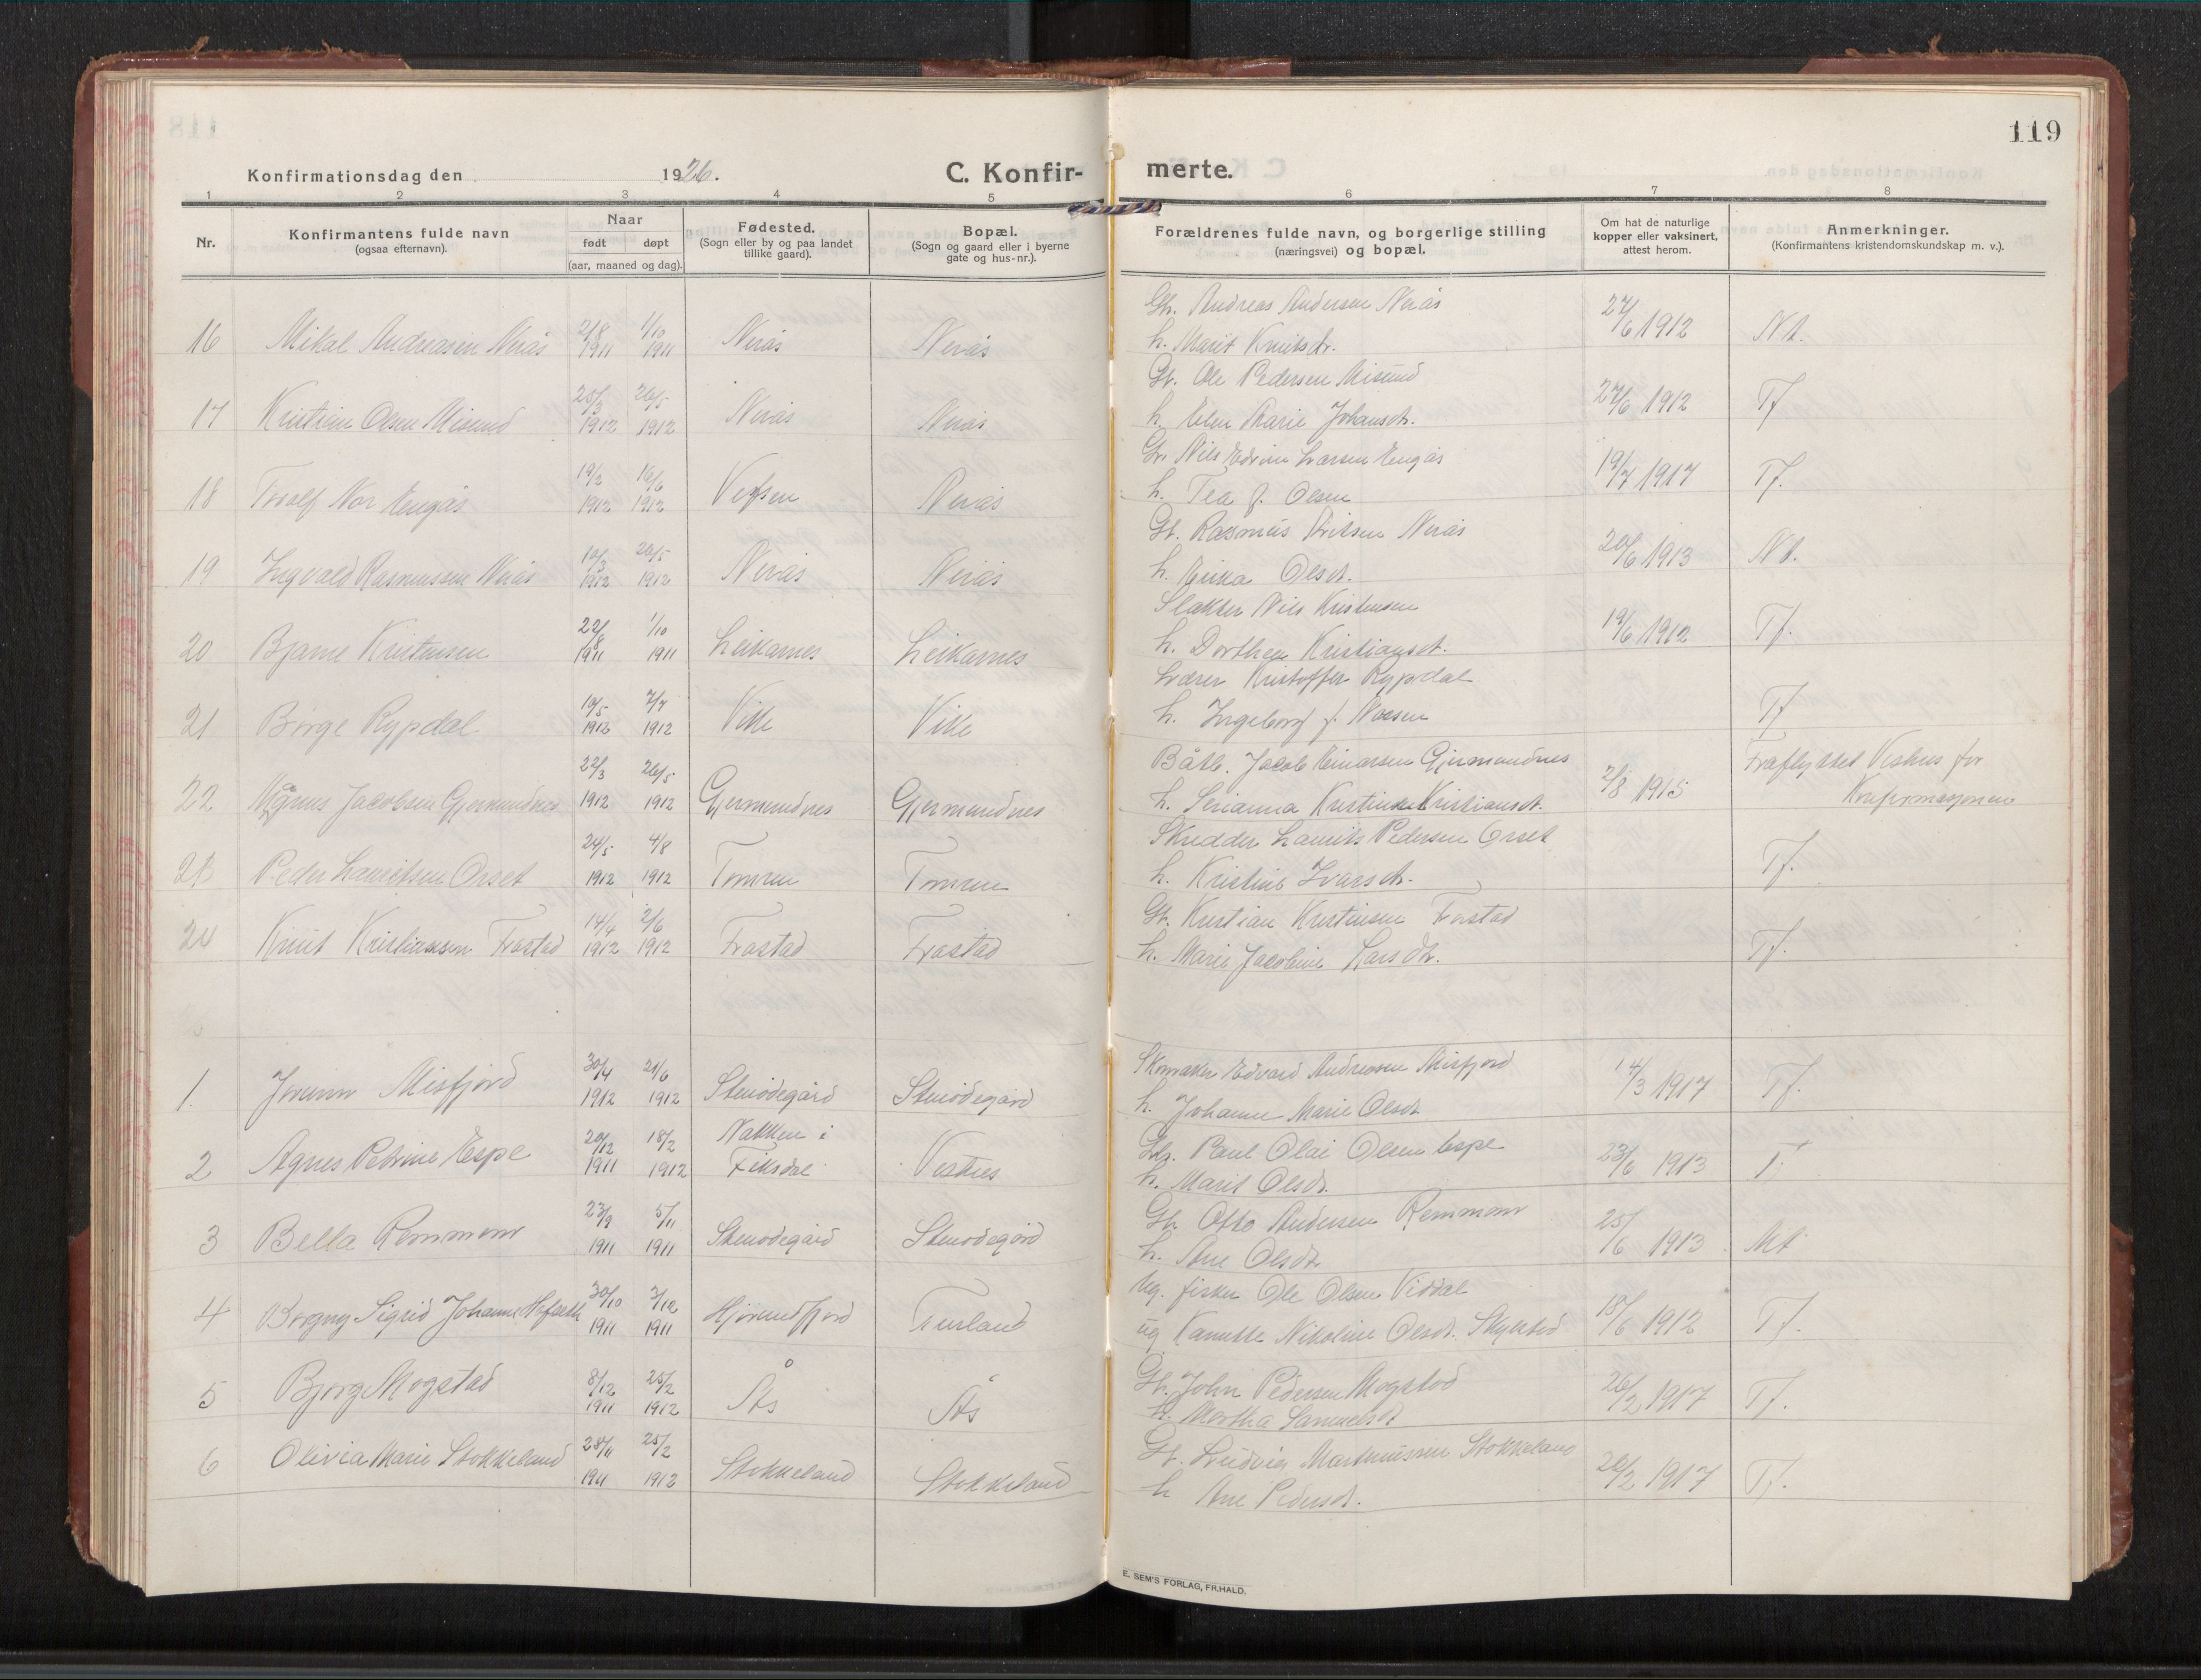 119
Konfirmationsdag den 1926.
C. Konfirmerte.
1 2 3 4 5 6 7 8
Nr.
Konfirmantens fulde navn
(ogsaa efternavn).
Naar
født døpt
(aar, maaned og dag).
Fødested.
(Sogn eller by og paa landet
tillike gaard).
Bopæl.
(Sogn og gaard eller i byerne
gate og hus-nr.).
Forældrenes fulde navn, og borgerlige stilling
(næringsvei) og bopæl.
Om hat de naturlige
kopper eller vaksinert,
attest herom.
Anmerkninger.
(Konfirmantens kristendomskundskap m. v.).
16 Mikal Andreasen Nerås 2/8 1911 1/10 1911 Nerås Nerås
Gb. Andreas Andersen Nerås
h. Marit Knutsdr.
27/6 1912 Nt.
17 Kristian Olsen Misund 25/3 1912 26/5 1912 Nerås Nerås
Gb. Ole Pedersen Misund
h. Elen Marie Johansdr.
27/6 1912 Tf
18 Torolf Nor Engås 19/3 1912 16/6 1912 Vefsen Nerås
Gbr Nils Edvin Larsen Engås
h. Tea f. Olsen
19/7 1917 Tf.
19 Ingvald Rasmussen Nerås 10/3 1912 26/5 1912 Nerås Nerås
Gb. Rasmus Eriksen Nerås
h. Erika Olsdt.
20/6 1913 Nt.
20 Bjarne Kristensen 22/8 1911 1/10 1911 Leikarnes Leikarnes
Slakter Nils Kristensen
h. Dorthea Kristiansdt.
19/6 1912 Tf.
21 Børge Rypdal 19/5 1912 7/7 1912 Ville Ville
Lærer Kristoffer Rypdal
h. Ingeborg f. Noesen
Tf
22 Magnus Jacobsen Gjermundnes 22/3 1912 26/5 1912 Gjermundnes Gjermundnes
Båtb. Jacob Einarsen Gjermundnes
h. Serianna Kristine Kristiansdt.
2/8 1915 Fraflyttet Veshus før
Konfirmasjonen
23 Peder Lauritsen Orset 24/5 1912 4/8 1912 Tomren Tomren
Skredder Laurits Pedersen Orset
h. Kristine Ivarsdt.
Tf.
24 Knut Kristiansen Frostad 14/4 1912 2/6 1912 Frostad Frostad
Gb. Kristian Kristiansen Frostad
h. Marie Jacobine Larsdtr.
Tf.
1. Jorunn Misfjord 30/4 1912 21/6 1912 Stenødegård Stenødegård
Skomaker Edvard Andreasen Misfjord
h. Johanne Marie Olsdt.
14/3 1917 Tf.
2 Agnes Petrine Espe 20/12 1911 18/2 1912 Nakken i
Fiksdal Vestnes
Paul Olai Olsen Espe
h. Marit Olsdt.
23/6 1913 T.
3 Bella Remmem 23/9 1911 5/11 1911 Stenødegård Stenødegård
Gb. Otto Andersen Remmem
h. Ane Olsdt.
25/6 1913 Mt
4 Borgny Sigrid Johanne Hofseth 30/10 1911 3/12 1911 Hjørundfjord Furland
Ug. fisker Ole Olsen Viddal
ug Kanutte Nikoline Olsdt. Skylstad
18/6 1912 Tf.
5 Bjørg Mogstad 8/12 1911 25/2 1912 Ås Ås
Gb. John Pedersen Mogstad
h. Martha Samuelsdt
26/2 1917 Tf.
6 Olivia Marie Stokkeland 28/11 1911 25/2 1912 Stokkeland Stokkeland
Gb. Ludvig Martinussen Stokkeland
h Ane Pedersdt.
26/2 1917 Tf.
E. SEM'S FORLAG, FR.HALD.